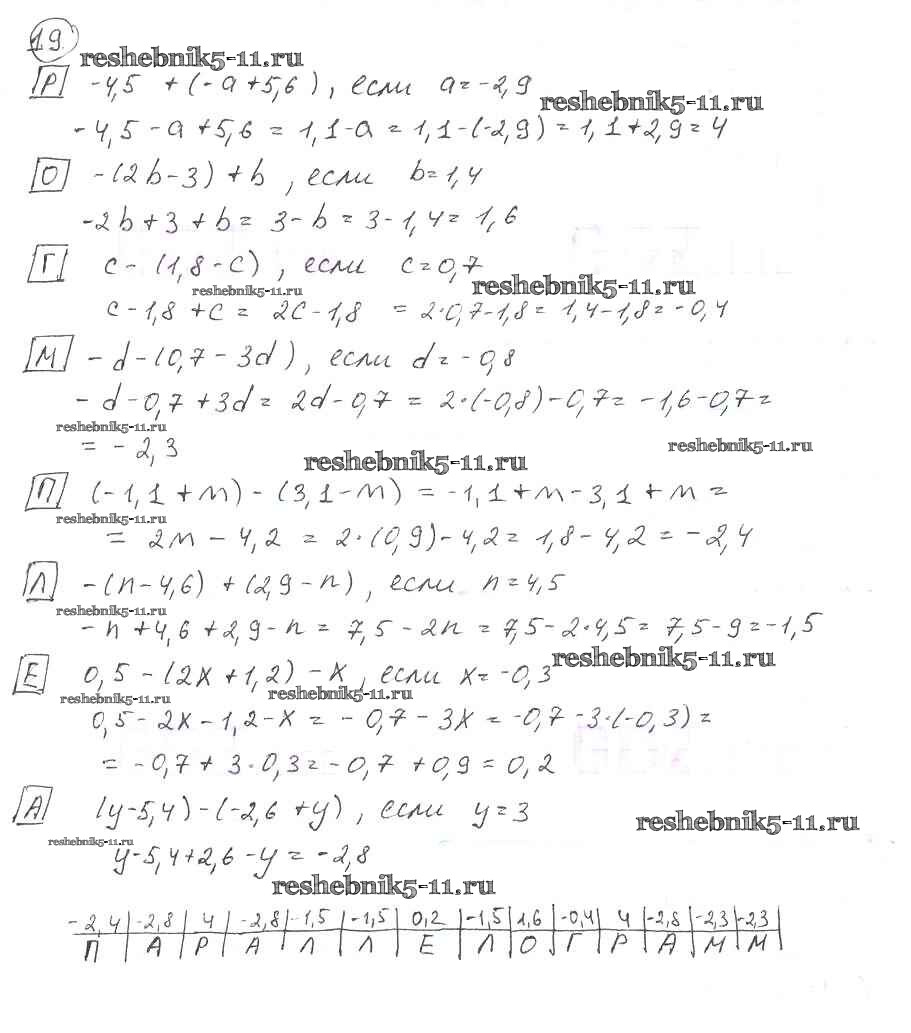 19.
reshebnik5-11.ru
Р -4,5 + (-a+5,6), если a=-2,9
reshebnik5-11.ru
-4,5-a+5,6 = 1,1-a = 1,1-(-2,9) = 1,1+2,9 = 4
О -(2b-3)+b, если b=1,4
-2b+3+b = 3-b = 3-1,4 = 1,6
Г c-(1,8-c), если c=0,7
reshebnik5-11.ru reshebnik5-11.ru
c-1,8+c = 2c-1,8 = 2·0,7-1,8 = 1,4-1,8 = -0,4
М -d-(0,7-3d), если d=-0,8
-d-0,7+3d = 2d-0,7 = 2·(-0,8)-0,7 = -1,6-0,7 =
reshebnik5-11.ru
= -2,3
reshebnik5-11.ru reshebnik5-11.ru
П (-1,1+m)-(3,1-m) = -1,1+m-3,1+m =
reshebnik5-11.ru
= 2m-4,2 = 2·(0,9)-4,2 = 1,8-4,2 = -2,4
Л -(n-4,6)+(2,9-n), если n=4,5
reshebnik5-11.ru
-n+4,6+2,9-n = 7,5-2n = 7,5-2·4,5 = 7,5-9 = -1,5
reshebnik5-11.ru
Е 0,5-(2x+1,2)-x, если x=-0,3
reshebnik5-11.ru reshebnik5-11.ru
0,5-2x-1,2-x = -0,7-3x = -0,7-3·(-0,3) =
= -0,7+3·0,3 = -0,7+0,9 = 0,2
А (y-5,4)-(-2,6+y), если y=3
reshebnik5-11.ru reshebnik5-11.ru
y-5,4+2,6-y = -2,8
reshebnik5-11.ru
-2,4 | -2,8 | 4 | -2,8 | -1,5 | -1,5 | 0,2 | -1,5 | 1,6 | -0,4 | 4 | -2,8 | -2,3 | -2,3
П | А | Р | А | Л | Л | Е | Л | О | Г | Р | А | М | М